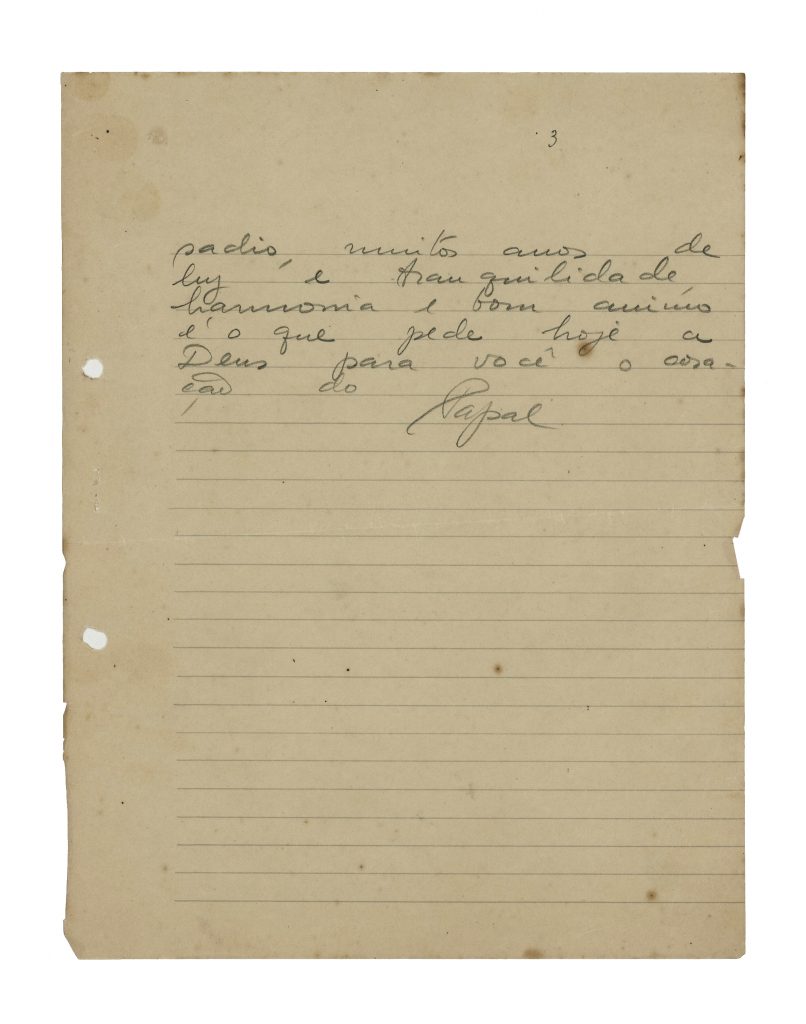 3
sadio, muitos anos de
luz e tranquilidade,
harmonia e bom animo
é o que pede hoje a
Deus para você o cora-
ção do
Papai